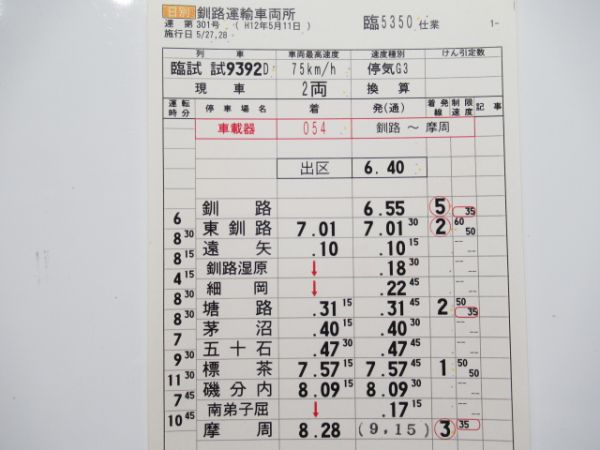 日別 釧路運輸車両所
運 第301号 ( H12年5月11日 ) 臨5350仕業 1-
施行日 5/27,28
列車 車両最高速度 速度種別 けん引定数
臨試 試9392D 75km/h 停気G3
現車 2両 換算
運転時分 停車場名 着 発(通) 着発線 制限速度 記事
車載器 054 釧路 ～ 摩周
出区 6.40
釧路 6.55 5 35
6
東釧路 7.01 7.01 30 2 60 50
8 30
遠矢 .10 .10 15
8 15
釧路湿原 ↓ .18 30
4 15
細岡 ↓ .22 45
8 30
塘路 .31 15 .31 45 2 50 35
8 30
茅沼 .40 15 .40 30
7
五十石 .47 30 .47 45
9 30
標茶 7.57 15 7.57 45 1 50 50
11 30
磯分内 8.09 15 8.09 30
7 45
南弟子屈 ↓ .17 15
10 45
摩周 8.28 (9.15) 3 35